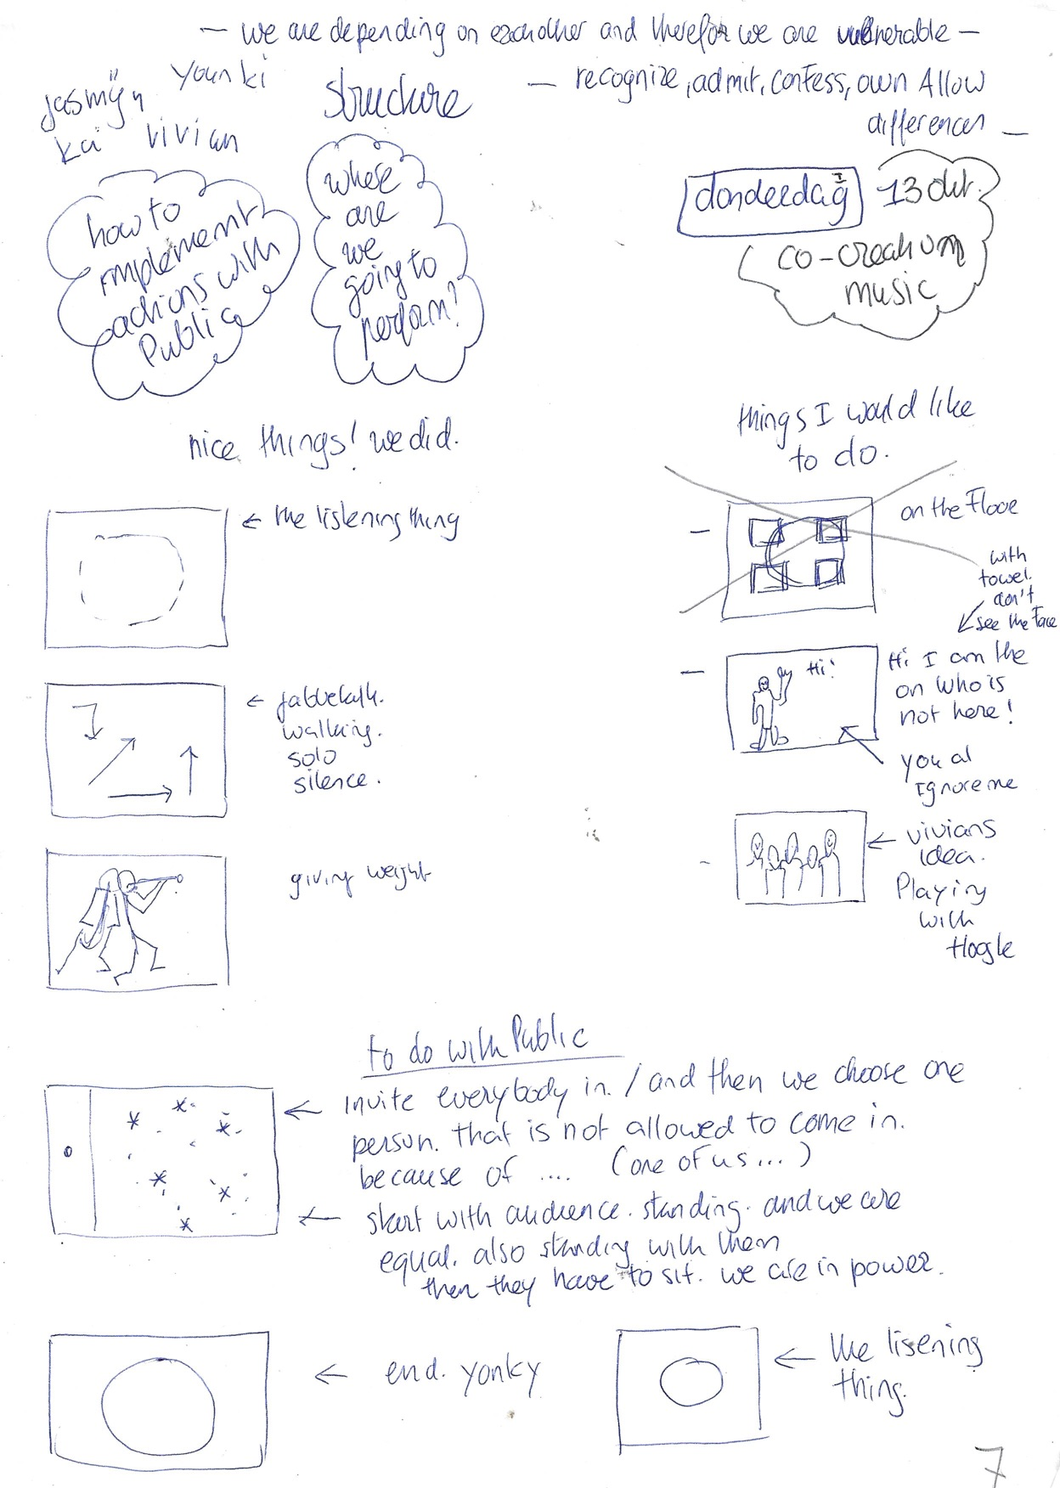 — we are depending on eachother and therefor we are vulnerable —
— recognize, admit, confess, own Allow
differences —
jasmijn younki
kai vivian
structure
how to
implement
actions with
Public
where
are
we
going to
perform?
donderdag
13 okt.
co-creation
music
nice things! we did.
← the listening thing
← 
walking.
solo
silence.
giving weight
things I would like
to do.
on the Floor
with
towel.
don't
see the Face
Hi!
Hi I am the
on who is
not here!
you al
Ignore me
← vivians
idea.
Playing
with
to do with Public
← invite everybody in. / and then we choose one
person. that is not allowed to come in.
because of .... (one of us...)
← start with audience. standing. and we are
equal. also standing with them
then they have to sit. we are in power.
← end. yonky
← the lisening
thing.
7